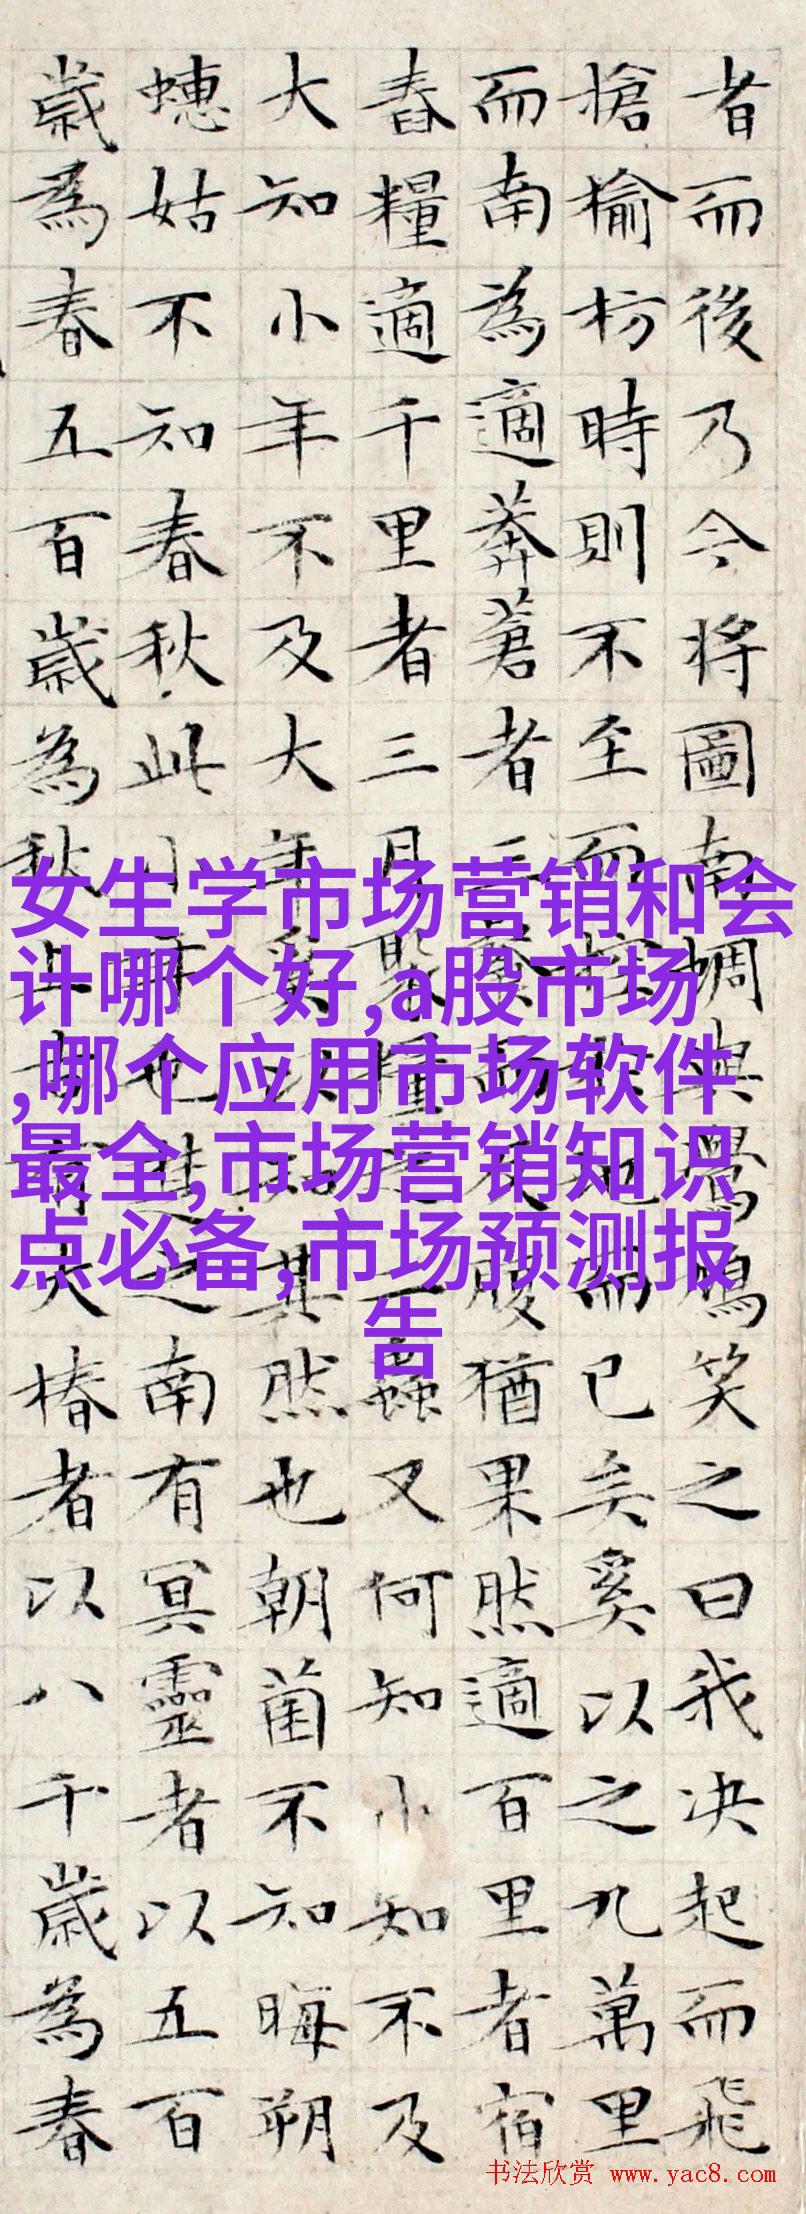 者而後乃今將圖南蜩與鷽鳩笑之曰我决起而飛
搶榆枋時則不至而控於地而已矣奚以之九萬里
而南為適莽蒼者三飡而反腹猶果然適百里者宿
舂糧適千里者三月聚糧之二蟲又何知小知不及
大知小年不及大年奚以知其然也朝菌不知晦朔
蟪姑不知春秋此小年也楚之南有冥靈者以五百
歲為春五百歲為秋上古有大椿者以八千歲為春
女生学市场营销和会
计哪个好,a股市场
,哪个应用市场软件
最全,市场营销知识
点必备,市场预测报
告
书法欣赏 www.yac8.com